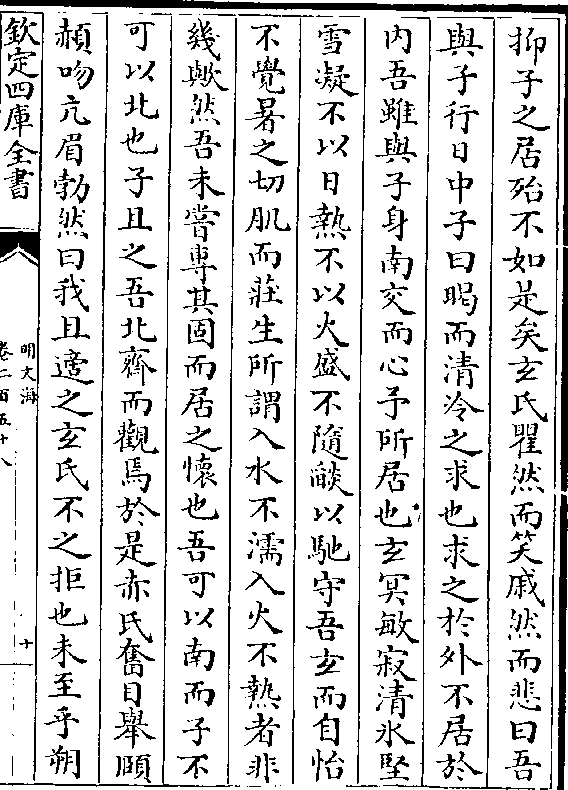 抑子之居殆不如是矣玄氏瞿然而笑戚然而悲曰吾
與子行日中子曰暍而清冷之求也求之於外不居於
内吾雖與子身南交而心予所居也玄冥敏寂清氷堅
雪凝不以日熱不以火盛不隨燄以馳守吾玄而自怡
不覺暑之切肌而莊生所謂入水不濡入火不熱者非
幾歟然吾未嘗專其固而居之懷也吾可以南而子不
可以北也子且之吾北齊而觀焉於是赤氏奮目舉頤
赬吻亢眉勃然曰我且適之玄氏不之拒也未至乎朔
欽定四庫全書
明文海
卷二百五十八
十